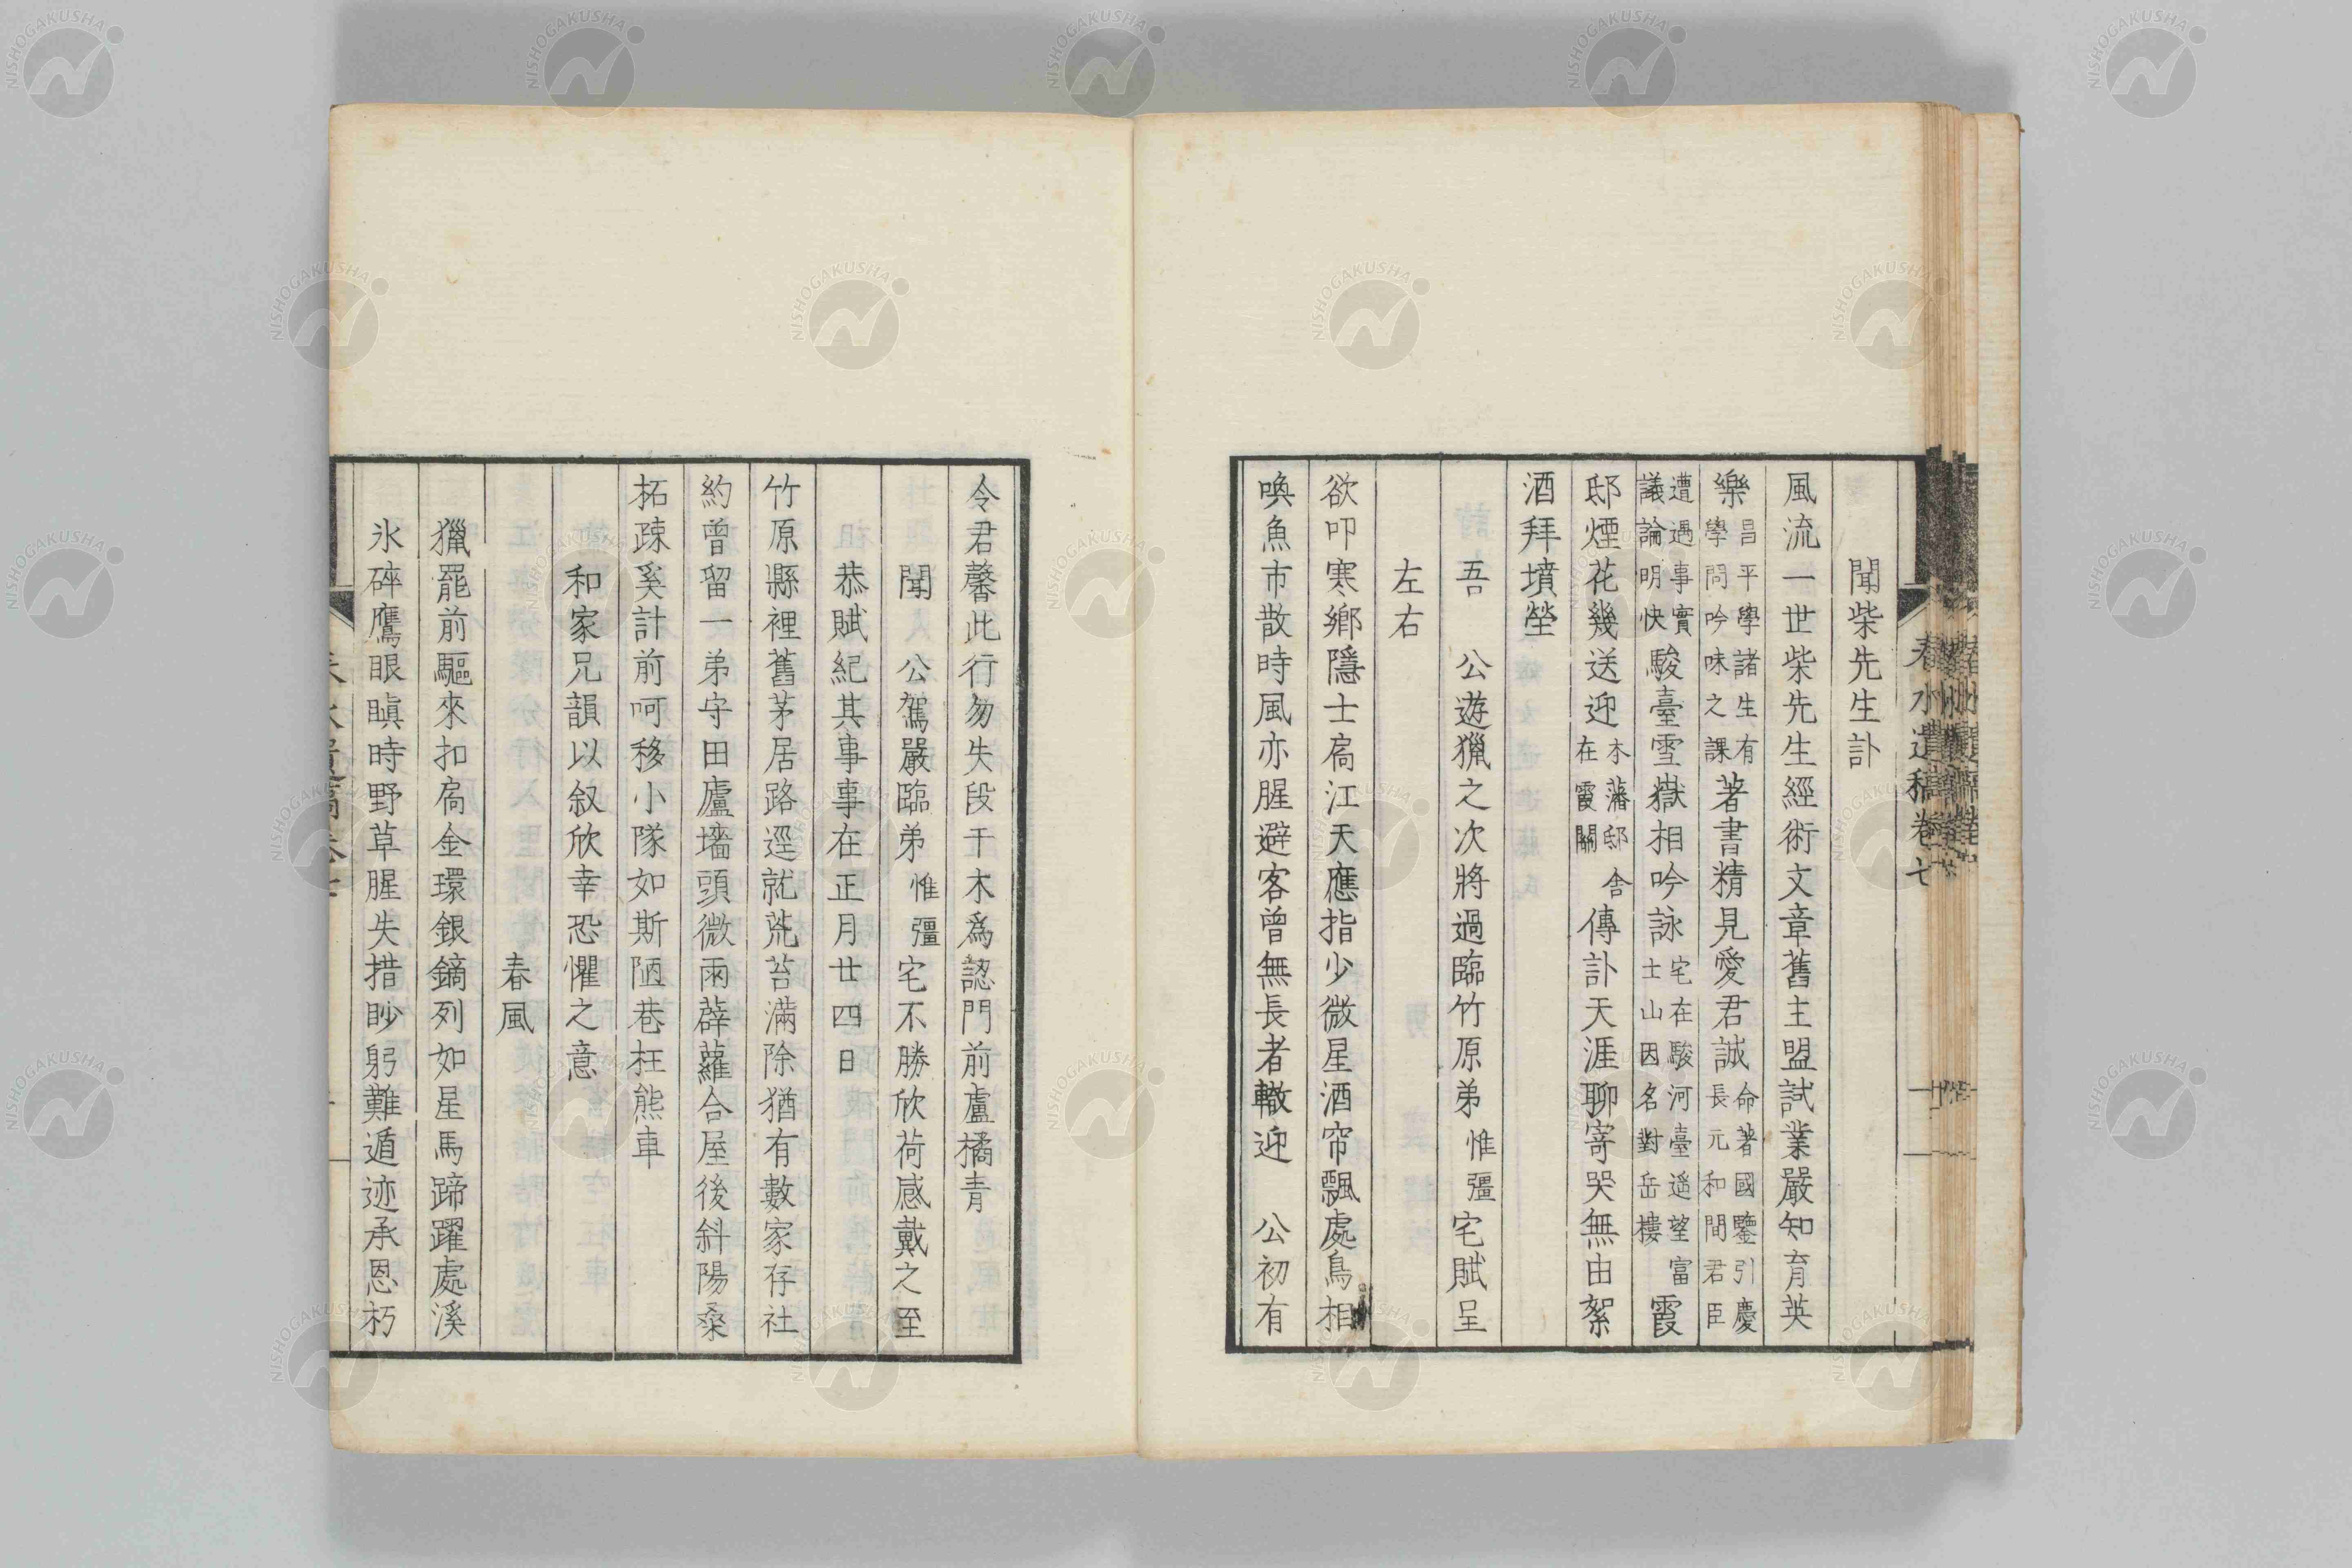 春水遺稿卷七
聞柴先生訃
風流一世柴先生經術文章舊主盟試業嚴知育英
樂昌平學諸生有學問吟味之課著書精見愛君誠命著國鑒引慶長元和間君臣
遭遇事實議論明快駿臺雪嶽相吟詠宅在駿河臺遙望富士山因名對岳樓霞
邸煙花幾送迎本藩邸舍在霞關傳訃天涯聊寄哭無由絮
酒拜墳塋
吾 公遊獵之次將過臨竹原弟惟彊宅賦呈
左右
欲叩寒鄉隱士扃江天應指少微星酒帘飄處鳥相
喚魚市散時風亦腥避客曾無長者轍迎 公初有
令君馨此行勿失段干木爲認門前盧橘青
聞 公駕嚴臨弟惟彊宅不勝欣荷感戴之至
恭賦紀其事事在正月廿四日
竹原縣裡舊茅居路逕就荒苔滿除猶有數家存社
約曾留一弟守田廬墻頭微雨薜蘿合屋後斜陽桑
柘疎奚計前呵移小隊如斯陋巷枉熊車
和家兄韻以叙欣幸恐懼之意
春風
獵罷前驅來扣扃金環銀鏑列如星馬蹄躍處溪
氷碎鷹眼瞋時野草腥失措眇躬難遁迹承恩朽